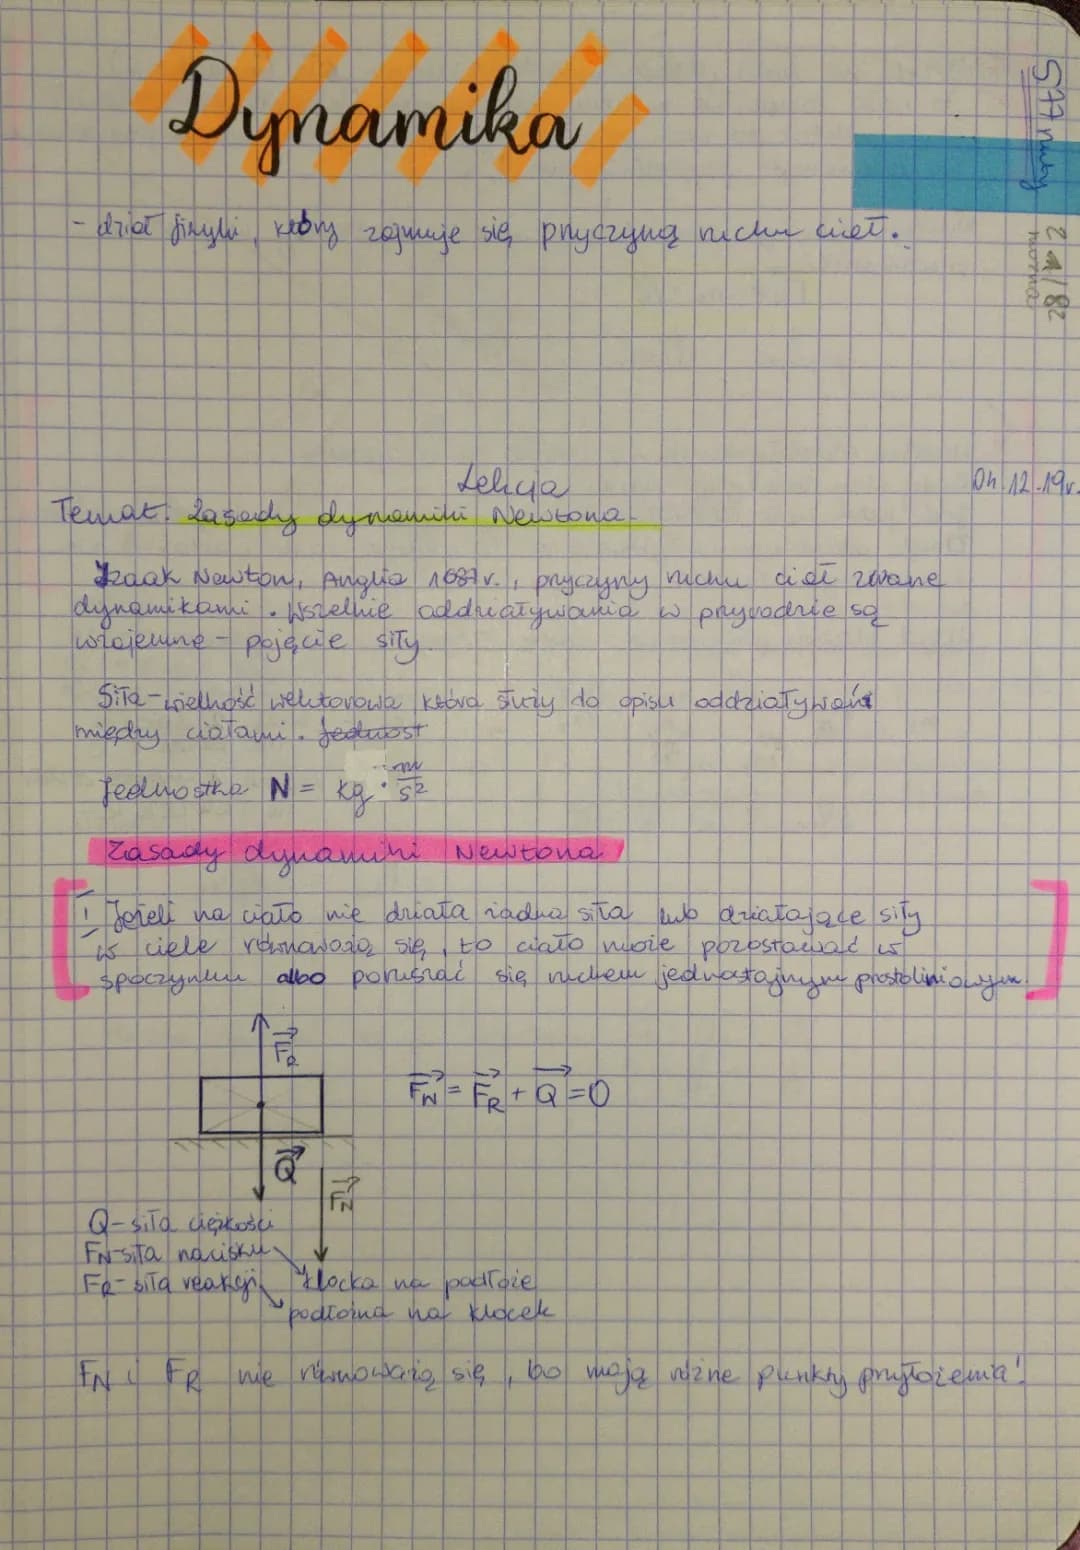 Dynamika
- dział fizyki, który zajmuje się przyczyną ruchu ciał.
Lekcja
04.12.19r.
Temat: Zasady dynamiki Newtona.
Izaak Newton, Anglia 1687r., przyczyny ruchu ciał zwane
dynamikami. Wszelkie oddziaływania w przyrodzie są
wzajemne - pojęcie siły.
Siła - wielkość wektorowa która służy do opisu oddziaływań
między ciałami. Jednost
Jednostka N = kg · m/s²
Zasady dynamiki Newtona
I Jeżeli na ciało nie działa żadna siła lub działające siły
w ciele równoważą się, to ciało może pozostawać w
spoczynku albo poruszać się ruchem jednostajnym prostoliniowym.
F_R
F_W = F_R + Q = 0
Q
F_N
Q - siła ciężkości
FN - siła nacisku
FR - siła reakcji
klocka na podłoże
podłoża na klocek
FN i FR nie równoważą się, bo mają różne punkty przyłożenia!
SIŁY
28/